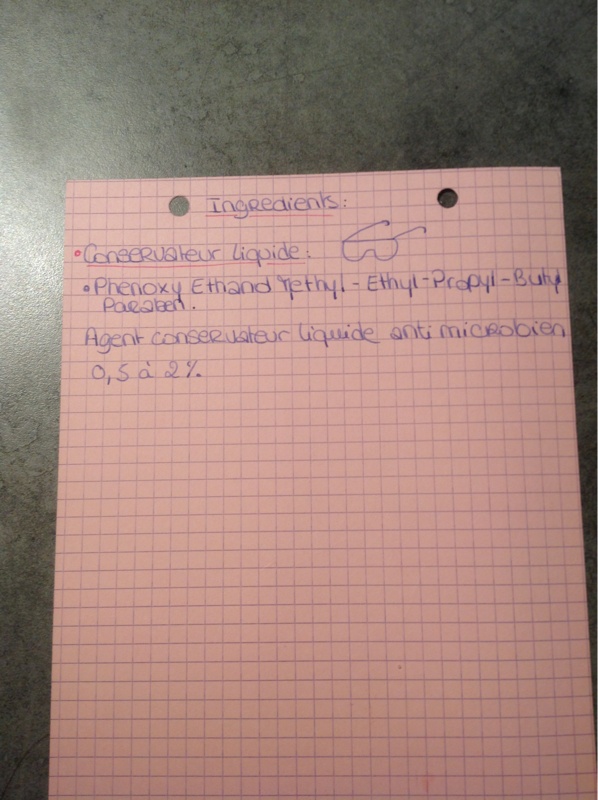 Ingredients:
• Conservateur liquide:
• Phenoxy Ethanol Methyl - Ethyl - Propyl - Butyl
Paraben.
Agent conservateur liquide anti microbien
0,5 à 2%